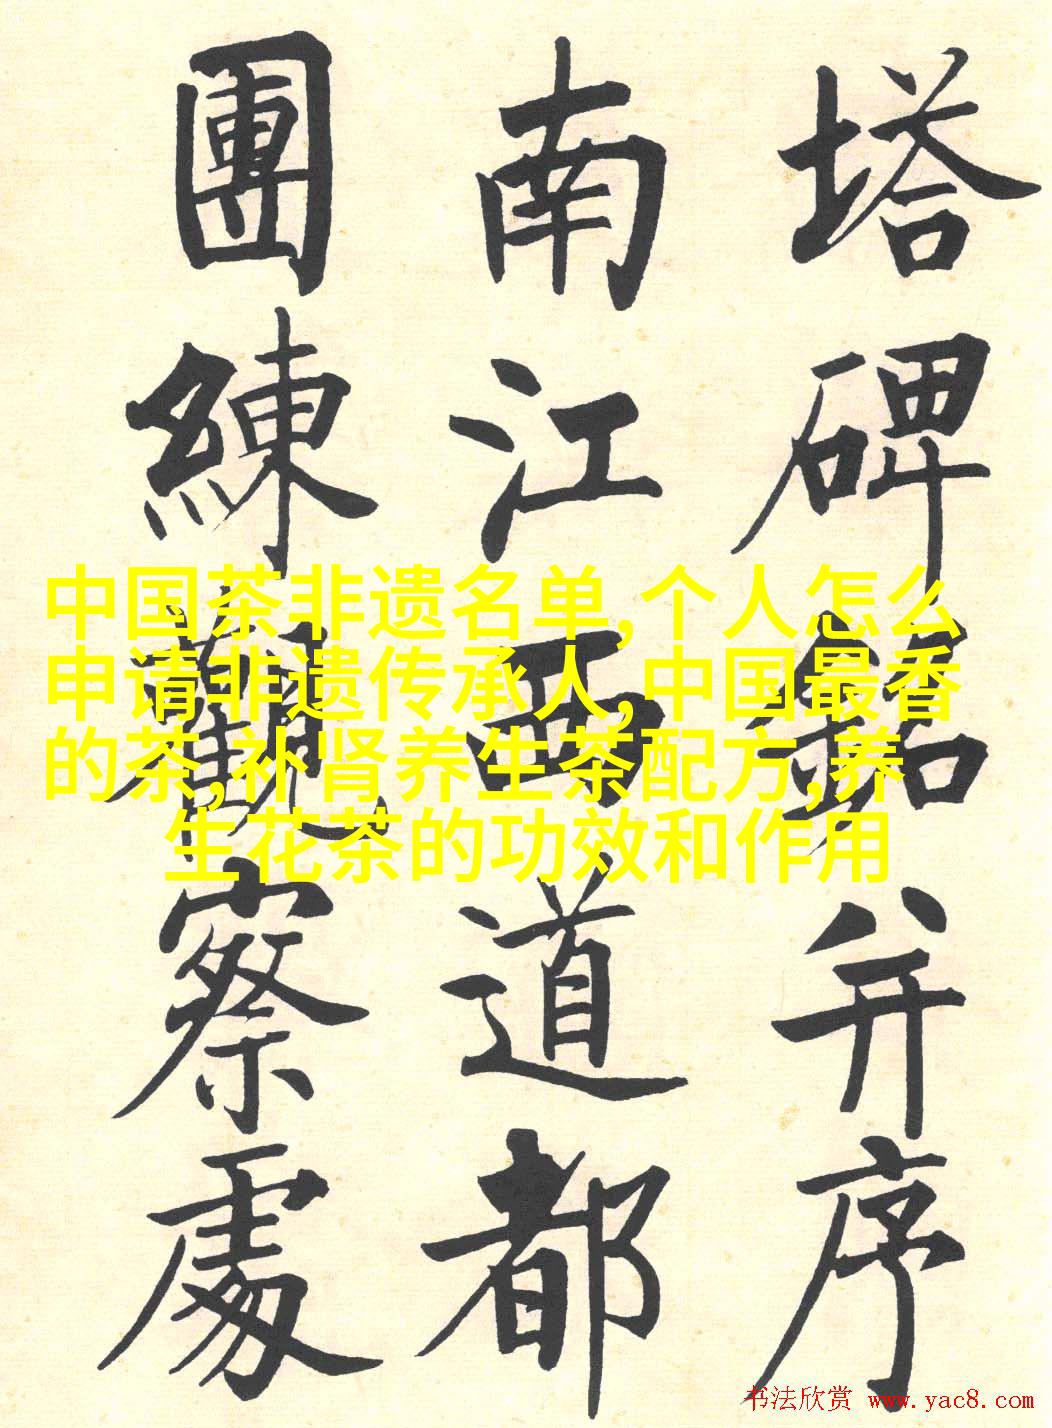 塔碑銘并序
南江西道都
團練觀察處
中国茶非遗名单,个人怎么
申请非遗传承人,中国最香
的茶,补肾养生茶配方,养
生花茶的功效和作用
书法欣赏 www.yac8.com